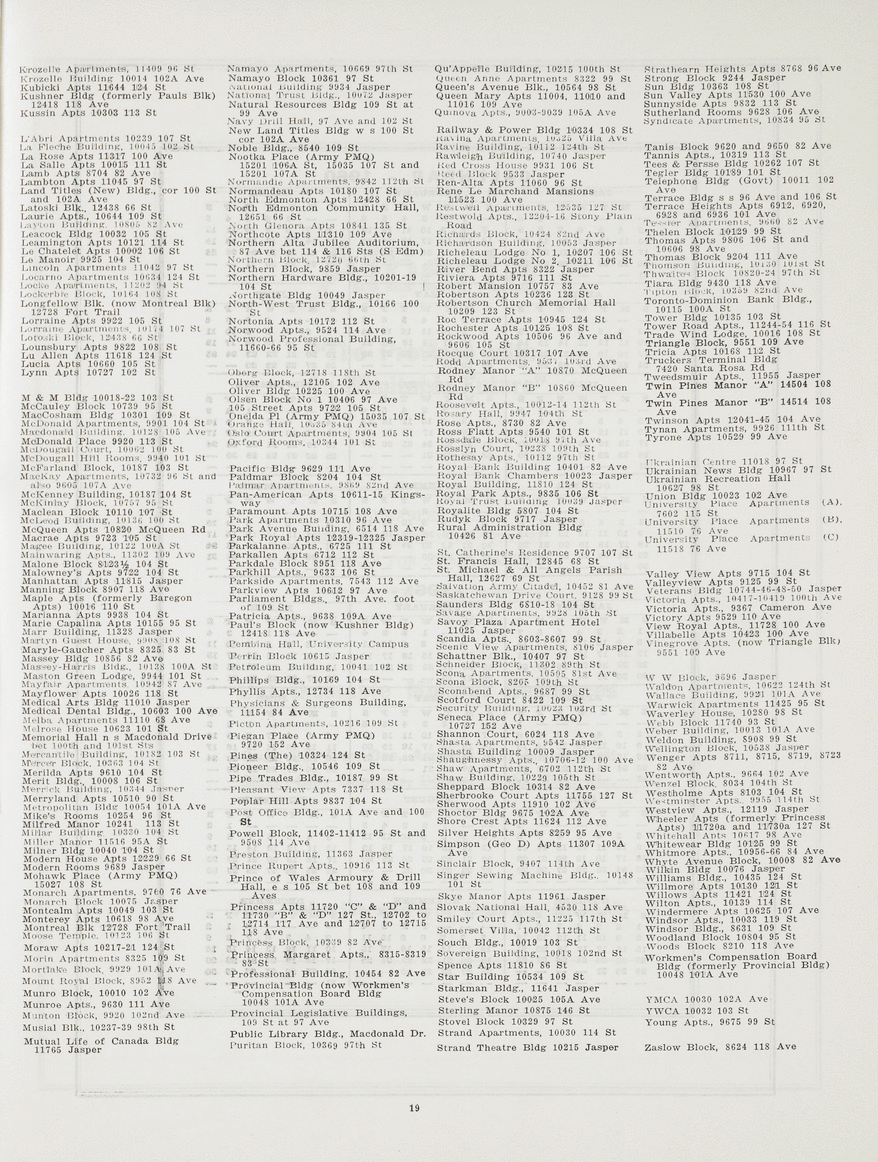 Krozelle Apartments, 11409 96 St
Krozelle Building 10014 102A Ave
Kubicki Apts 11644 124 St
Kushner Bldg (formerly Pauls Blk)
12418 118 Ave
Kussin Apts 10303 113 St
L'Abri Apartments 10239 107 St
La Fleche Building, 10045 102 St
La Rose Apts 11317 100 Ave
La Salle Apts 10015 111 St
Lamb Apts 8704 82 Ave
Lambton Apts 11045 97 St
Land Titles (New) Bldg., cor 100 St
and 102A Ave
Latoski Blk., 12438 66 St
Laurie Apts., 10644 109 St
Layton Building, 10805 82 Ave
Leacock Bldg 10032 105 St
Leamington Apts 10121 114 St
Le Chatelet Apts 10002 106 St
Le Manoir 9925 104 St
Lincoln Apartments 11042 97 St
Locarno Apartments 10634 124 St
Locke Apartments, 11202 94 St
Lockerbie Block, 10164 108 St
Longfellow Blk. (now Montreal Blk)
12728 Fort Trail
Lorraine Apts 9922 105 St
Lorraine Apartments, 10174 107 St
Lotoski Block, 12438 66 St
Lounsbury Apts 9822 108 St
Lu Allen Apts 11618 124 St
Lucia Apts 10660 105 St
Lynn Apts 10727 102 St
M & M Bldg 10018-22 103 St
McCauley Block 10739 95 St
MacCosham Bldg 10301 109 St
McDonald Apartments, 9901 104 St
Macdonald Building, 10128 105 Ave
McDonald Place 9920 113 St
McDougall Court, 10062 100 St
McDougall Hill Rooms, 9940 101 St
McFarland Block, 10187 103 St
MacKay Apartments, 10732 96 St and
also 9605 107A Ave
McKenney Building, 10187 104 St
McKinlay Block, 10757 95 St
Maclean Block 10110 107 St
McLeod Building, 10136 100 St
McQueen Apts 10820 McQueen Rd
Macrae Apts 9723 105 St
Magee Building, 10122 100A St
Mainwaring Apts., 11302 109 Ave
Malone Block 8123½ 104 St
Malowney's Apts 9722 104 St
Manhattan Apts 11815 Jasper
Manning Block 8907 118 Ave
Maple Apts (formerly Baregon
Apts) 10016 110 St
Marianna Apts 9938 104 St
Marie Capalina Apts 10155 95 St
Marr Building, 11328 Jasper
Martyn Guest House, 9908 108 St
Maryle-Gaucher Apts 8325 83 St
Massey Bldg 10856 82 Ave
Massey-Harris Bldg., 10138 100A St
Maston Green Lodge, 9944 101 St
Mayfair Apartments, 10942 87 Ave
Mayflower Apts 10026 118 St
Medical Arts Bldg 11010 Jasper
Medical Dental Bldg., 10603 100 Ave
Melba Apartments 11110 68 Ave
Melrose House 10623 101 St
Memorial Hall n s Macdonald Drive
bet 100th and 101st Sts
Mercantile Building, 10182 103 St
Mercer Block, 10363 104 St
Merilda Apts 9610 104 St
Merit Bldg., 10008 106 St
Merrick Building, 10344 Jasper
Merryland Apts 10510 90 St
Metropolitan Bldg 10054 101A Ave
Mike's Rooms 10254 96 St
Milfred Manor 10241 113 St
Millar Building 10330 104 St
Miller Manor 11516 95A St
Milner Bldg 10040 104 St
Modern House Apts 12229 66 St
Modern Rooms 9689 Jasper
Mohawk Place (Army PMQ)
15027 108 St
Monarch Apartments, 9760 76 Ave
Monarch Block 10075 Jasper
Montcalm Apts 10049 103 St
Monterey Apts 10618 98 Ave
Montreal Blk 12728 Fort Trail
Moose Temple, 10123 106 St
Moraw Apts 10217-21 124 St
Morin Apartments 8325 109 St
Mortlake Block, 9929 101A Ave
Mount Royal Block, 8952 118 Ave
Munro Block, 10010 102 Ave
Munroe Apts., 9630 111 Ave
Munton Blk., 9920 102nd Ave
Musial Blk., 10237-39 98th St
Mutual Life of Canada Bldg
11765 Jasper
Namayo Apartments, 10669 97th St
Namayo Block 10361 97 St
National Building, 9934 Jasper
National Trust Bldg., 10072 Jasper
Natural Resources Bldg 109 St at
99 Ave
Navy Drill Hall, 97 Ave and 102 St
New Land Titles Bldg w s 100 St
cor 102A Ave
Noble Bldg., 8540 109 St
Nootka Place (Army PMQ)
15201 106A St, 15035 107 St and
15201 107A St
Normandie Apartments, 9842 112th St
Normandeau Apts 10180 107 St
North Edmonton Apts 12428 66 St
North Edmonton Community Hall,
12651 66 St
North Glenora Apts 10841 135 St
Northcote Apts 11310 109 Ave
Northern Alta Jubilee Auditorium,
87 Ave bet 114 & 116 Sts (S Edm)
Northern Block, 12720 66th St
Northern Block, 9859 Jasper
Northern Hardware Bldg., 10201-19
104 St
Northgate Bldg 10049 Jasper
North-West Trust Bldg., 10166 100
St
Nortonia Apts 10172 112 St
Norwood Apts., 9524 114 Ave
Norwood Professional Building,
11660-66 95 St
Oborg Block, 12718 118th St
Oliver Apts., 12105 102 Ave
Oliver Bldg 10225 100 Ave
Olsen Block No 1 10406 97 Ave
105 Street Apts 9722 105 St
Oneida Pl (Army PMQ) 15035 107 St
Orange Hall, 10335 84th Ave
Oslo Court Apartments, 9904 105 St
Oxford Rooms, 10344 101 St
Pacific Bldg 9629 111 Ave
Paldmar Block 8204 104 St
Palmar Apartments, 9869 82nd Ave
Pan-American Apts 10611-15 Kings-
way
Paramount Apts 10715 108 Ave
Park Apartments 10310 96 Ave
Park Avenue Building, 6514 118 Ave
Park Royal Apts 12319-12325 Jasper
Parkalanne Apts., 6725 111 St
Parkallen Apts 6712 112 St
Parkdale Block 8951 118 Ave
Parkhill Apts., 9633 106 St
Parkside Apartments, 7543 112 Ave
Parkview Apts 10612 97 Ave
Parliament Bldgs., 97th Ave. foot
of 109 St
Patricia Apts., 9638 109A Ave
Paul's Block (now Kushner Bldg)
12418 118 Ave
Pembina Hall, University Campus
Perrin Block 10615 Jasper
Petroleum Building, 10041 102 St
Phillips Bldg., 10169 104 St
Phyllis Apts., 12734 118 Ave
Physicians & Surgeons Building,
11154 84 Ave
Picton Apartments, 10216 109 St
Piegan Place (Army PMQ)
9720 152 Ave
Pines (The) 10324 124 St
Pioneer Bldg., 10546 109 St
Pipe Trades Bldg., 10187 99 St
Pleasant View Apts 7337 118 St
Poplar Hill Apts 9837 104 St
Post Office Bldg., 101A Ave and 100
St
Powell Block, 11402-11412 95 St and
9508 114 Ave
Preston Building, 11363 Jasper
Prince Rupert Apts., 10916 113 St
Prince of Wales Armoury & Drill
Hall, e s 105 St bet 108 and 109
Aves
Princess Apts 11720 "C" & "D" and
11730 "B" & "D" 127 St., 12702 to
12714 117 Ave and 12707 to 12715
118 Ave
Princess Block, 10339 82 Ave
Princess Margaret Apts., 8315-8319
83 St
Professional Building, 10454 82 Ave
Provincial Bldg (now Workmen's
Compensation Board Bldg
10048 101A Ave
Provincial Legislative Buildings,
109 St at 97 Ave
Public Library Bldg., Macdonald Dr.
Puritan Block, 10369 97th St
Qu'Appelle Building, 10215 100th St
Queen Anne Apartments 8322 99 St
Queen's Avenue Blk., 10564 98 St
Queen Mary Apts 11004, 11010 and
11016 109 Ave
Quinova Apts., 9003-9039 105A Ave
Railway & Power Bldg 10334 108 St
Ravina Apartments, 10325 Villa Ave
Ravine Building, 10112 124th St
Rawleigh Building, 10740 Jasper
Red Cross House 9931 106 St
Reed Block 9533 Jasper
Ren-Alta Apts 11060 96 St
Rene Le Marchand Mansions
11523 100 Ave
Restwell Apartments, 12535 127 St
Restwold Apts., 12204-16 Stony Plain
Road
Richards Block, 10424 82nd Ave
Richardson Building, 10053 Jasper
Richeleau Lodge No 1, 10207 106 St
Richeleau Lodge No 2, 10211 106 St
River Bend Apts 8322 Jasper
Riviera Apts 9716 111 St
Robert Mansion 10757 83 Ave
Robertson Apts 10236 123 St
Robertson Church Memorial Hall
10209 123 St
Roc Terrace Apts 10945 124 St
Rochester Apts 10125 108 St
Rockwood Apts 10506 96 Ave and
9606 105 St
Rocque Court 10317 107 Ave
Rodd Apartments, 9537 103rd Ave
Rodney Manor "A" 10870 McQueen
Rd
Rodney Manor "B" 10860 McQueen
Rd
Roosevelt Apts., 10012-14 112th St
Rosary Hall, 9947 104th St
Rose Apts., 8730 82 Ave
Ross Flatt Apts 9540 101 St
Rossdale Block, 10018 97th Ave
Rosslyn Court, 10238 109th St
Rothesay Apts., 10112 97th St
Royal Bank Building 10401 82 Ave
Royal Bank Chambers 10023 Jasper
Royal Building, 11810 124 St
Royal Park Apts., 9835 106 St
Royal Trust Building 10039 Jasper
Royalite Bldg 5807 104 St
Rudyk Block 9717 Jasper
Rural Administration Bldg
10426 81 Ave
St. Catherine's Residence 9707 107 St
St. Francis Hall, 12845 68 St
St. Michael & All Angels Parish
Hall, 12627 69 St
Salvation Army Citadel, 10452 81 Ave
Saskatchewan Drive Court, 9128 99 St
Saunders Bldg 6810-18 104 St
Savage Apartments, 9928 105th St
Savoy Plaza Apartment Hotel
11025 Jasper
Scandia Apts., 8603-8607 99 St
Scenic View Apartments, 8106 Jasper
Schattner Blk., 10407 97 St
Schneider Block, 11302 89th St
Scona Apartments, 10505 81st Ave
Scona Block, 8205 109th St
Sconabend Apts., 9687 99 St
Scotford Court 8422 109 St
Security Building, 10023 103rd St
Seneca Place (Army PMQ)
10727 152 Ave
Shannon Court, 6024 118 Ave
Shasta Apartments, 9542 Jasper
Shasta Building 10009 Jasper
Shaughnessy Apts., 10706-12 100 Ave
Shaw Apartments, 6702 112th St
Shaw Building, 10229 105th St
Sheppard Block 10314 82 Ave
Sherbrooke Court Apts 11755 127 St
Sherwood Apts 11910 102 Ave
Shoctor Bldg 9675 102A Ave
Shore Crest Apts 11624 112 Ave
Silver Heights Apts 8259 95 Ave
Simpson (Geo D) Apts 11307 109A
Ave
Sinclair Block, 9407 114th Ave
Singer Sewing Machine Bldg., 10148
101 St
Skye Manor Apts 11961 Jasper
Slovak National Hall, 4530 118 Ave
Smiley Court Apts., 11225 117th St
Somerset Villa, 10042 112th St
Souch Bldg., 10019 103 St
Sovereign Building, 10018 102nd St
Spence Apts 11810 86 St
Star Building 10534 109 St
Starkman Bldg., 11641 Jasper
Steve's Block 10025 105A Ave
Sterling Manor 10875 146 St
Stovel Block 10329 97 St
Strand Apartments, 10030 114 St
Strand Theatre Bldg 10215 Jasper
Strathearn Heights Apts 8768 96 Ave
Strong Block 9244 Jasper
Sun Bldg 10363 108 St
Sun Valley Apts 11530 100 Ave
Sunnyside Apts 9832 113 St
Sutherland Rooms 9628 106 Ave
Syndicate Apartments, 10834 95 St
Tanis Block 9620 and 9650 82 Ave
Tannis Apts., 10319 113 St
Tees & Persse Bldg 10262 107 St
Tegler Bldg 10189 101 St
Telephone Bldg (Govt) 10011 102
Ave
Terrace Bldg s s 96 Ave and 106 St
Terrace Heights Apts 6912, 6920,
6928 and 6936 101 Ave
Tessier Apartments, 9660 82 Ave
Thelen Block 10129 99 St
Thomas Apts 9806 106 St and
10606 98 Ave
Thomas Block 9204 111 Ave
Thomson Building, 10130 101st St
Thwaites Block 10820-24 97th St
Tiara Bldg 9430 118 Ave
Tipton Block, 10359 82nd Ave
Toronto-Dominion Bank Bldg.,
10115 100A St
Tower Bldg 10135 103 St
Tower Road Apts., 11244-54 116 St
Trade Wind Lodge, 10016 108 St
Triangle Block, 9551 109 Ave
Tricia Apts 10168 112 St
Truckers Terminal Bldg
7420 Santa Rosa Rd
Tweedsmuir Apts., 11955 Jasper
Twin Pines Manor "A" 14504 108
Ave
Twin Pines Manor "B" 14514 108
Ave
Twinson Apts 12041-45 104 Ave
Tynan Apartments, 9926 111th St
Tyrone Apts 10529 99 Ave
Ukrainian Centre 11018 97 St
Ukrainian News Bldg 10967 97 St
Ukrainian Recreation Hall
10627 98 St
Union Bldg 10023 102 Ave
University Place Apartments (A),
7602 115 St
University Place Apartments (B),
11510 76 Ave
University Place Apartments (C)
11518 76 Ave
Valley View Apts 9715 104 St
Valleyview Apts 9125 99 St
Veterans Bldg 10744-46-48-50 Jasper
Victoria Apts., 10417-10419 100th Ave
Victoria Apts., 9367 Cameron Ave
Victory Apts 9529 110 Ave
View Royal Apts., 11728 100 Ave
Villabelle Apts 10423 100 Ave
Vinegrove Apts. (now Triangle Blk)
9551 109 Ave
W W Block, 9696 Jasper
Waldon Apartments, 10622 124th St
Wallace Building, 9921 101A Ave
Warwick Apartments 11425 95 St
Waverley House, 10280 98 St
Webb Block 11740 93 St
Weber Building, 10013 101A Ave
Weldon Building, 8908 99 St
Wellington Block, 10538 Jasper
Wenger Apts 8711, 8715, 8719, 8723
82 Ave
Wentworth Apts., 9664 102 Ave
Wenzel Block, 8034 104th St
Westholme Apts 8103 104 St
Westminster Apts., 9955 114th St
Westview Apts., 12119 Jasper
Wheeler Apts (formerly Princess
Apts) 11720a and 11730a 127 St
Whitehall Apts 10617 98 Ave
Whitewear Bldg 10125 99 St
Whitmore Apts., 10956-66 84 Ave
Whyte Avenue Block, 10008 82 Ave
Wilkin Bldg 10076 Jasper
Williams Bldg., 10435 124 St
Willmore Apts 10130 121 St
Willows Apts 11421 124 St
Wilton Apts., 10139 114 St
Windermere Apts 10625 107 St
Windsor Apts., 10033 119 St
Windsor Bldg., 8631 109 St
Woodland Block 10804 95 St
Woods Block 8210 118 Ave
Workmen's Compensation Board
Bldg (formerly Provincial Bldg)
10048 101A Ave
YMCA 10030 102A Ave
YWCA 10032 103 St
Young Apts., 9675 99 St
Zaslow Block, 8624 118 Ave
19